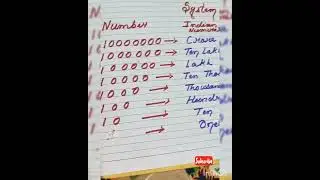 System
Number Indian
10000000 → Crore
1000000 → Ten Lak
100000 → Lakh
10000 → Ten Thou
1000 → Thousan
100 → Hundr
10 → Ten
1 → One
Subscribe